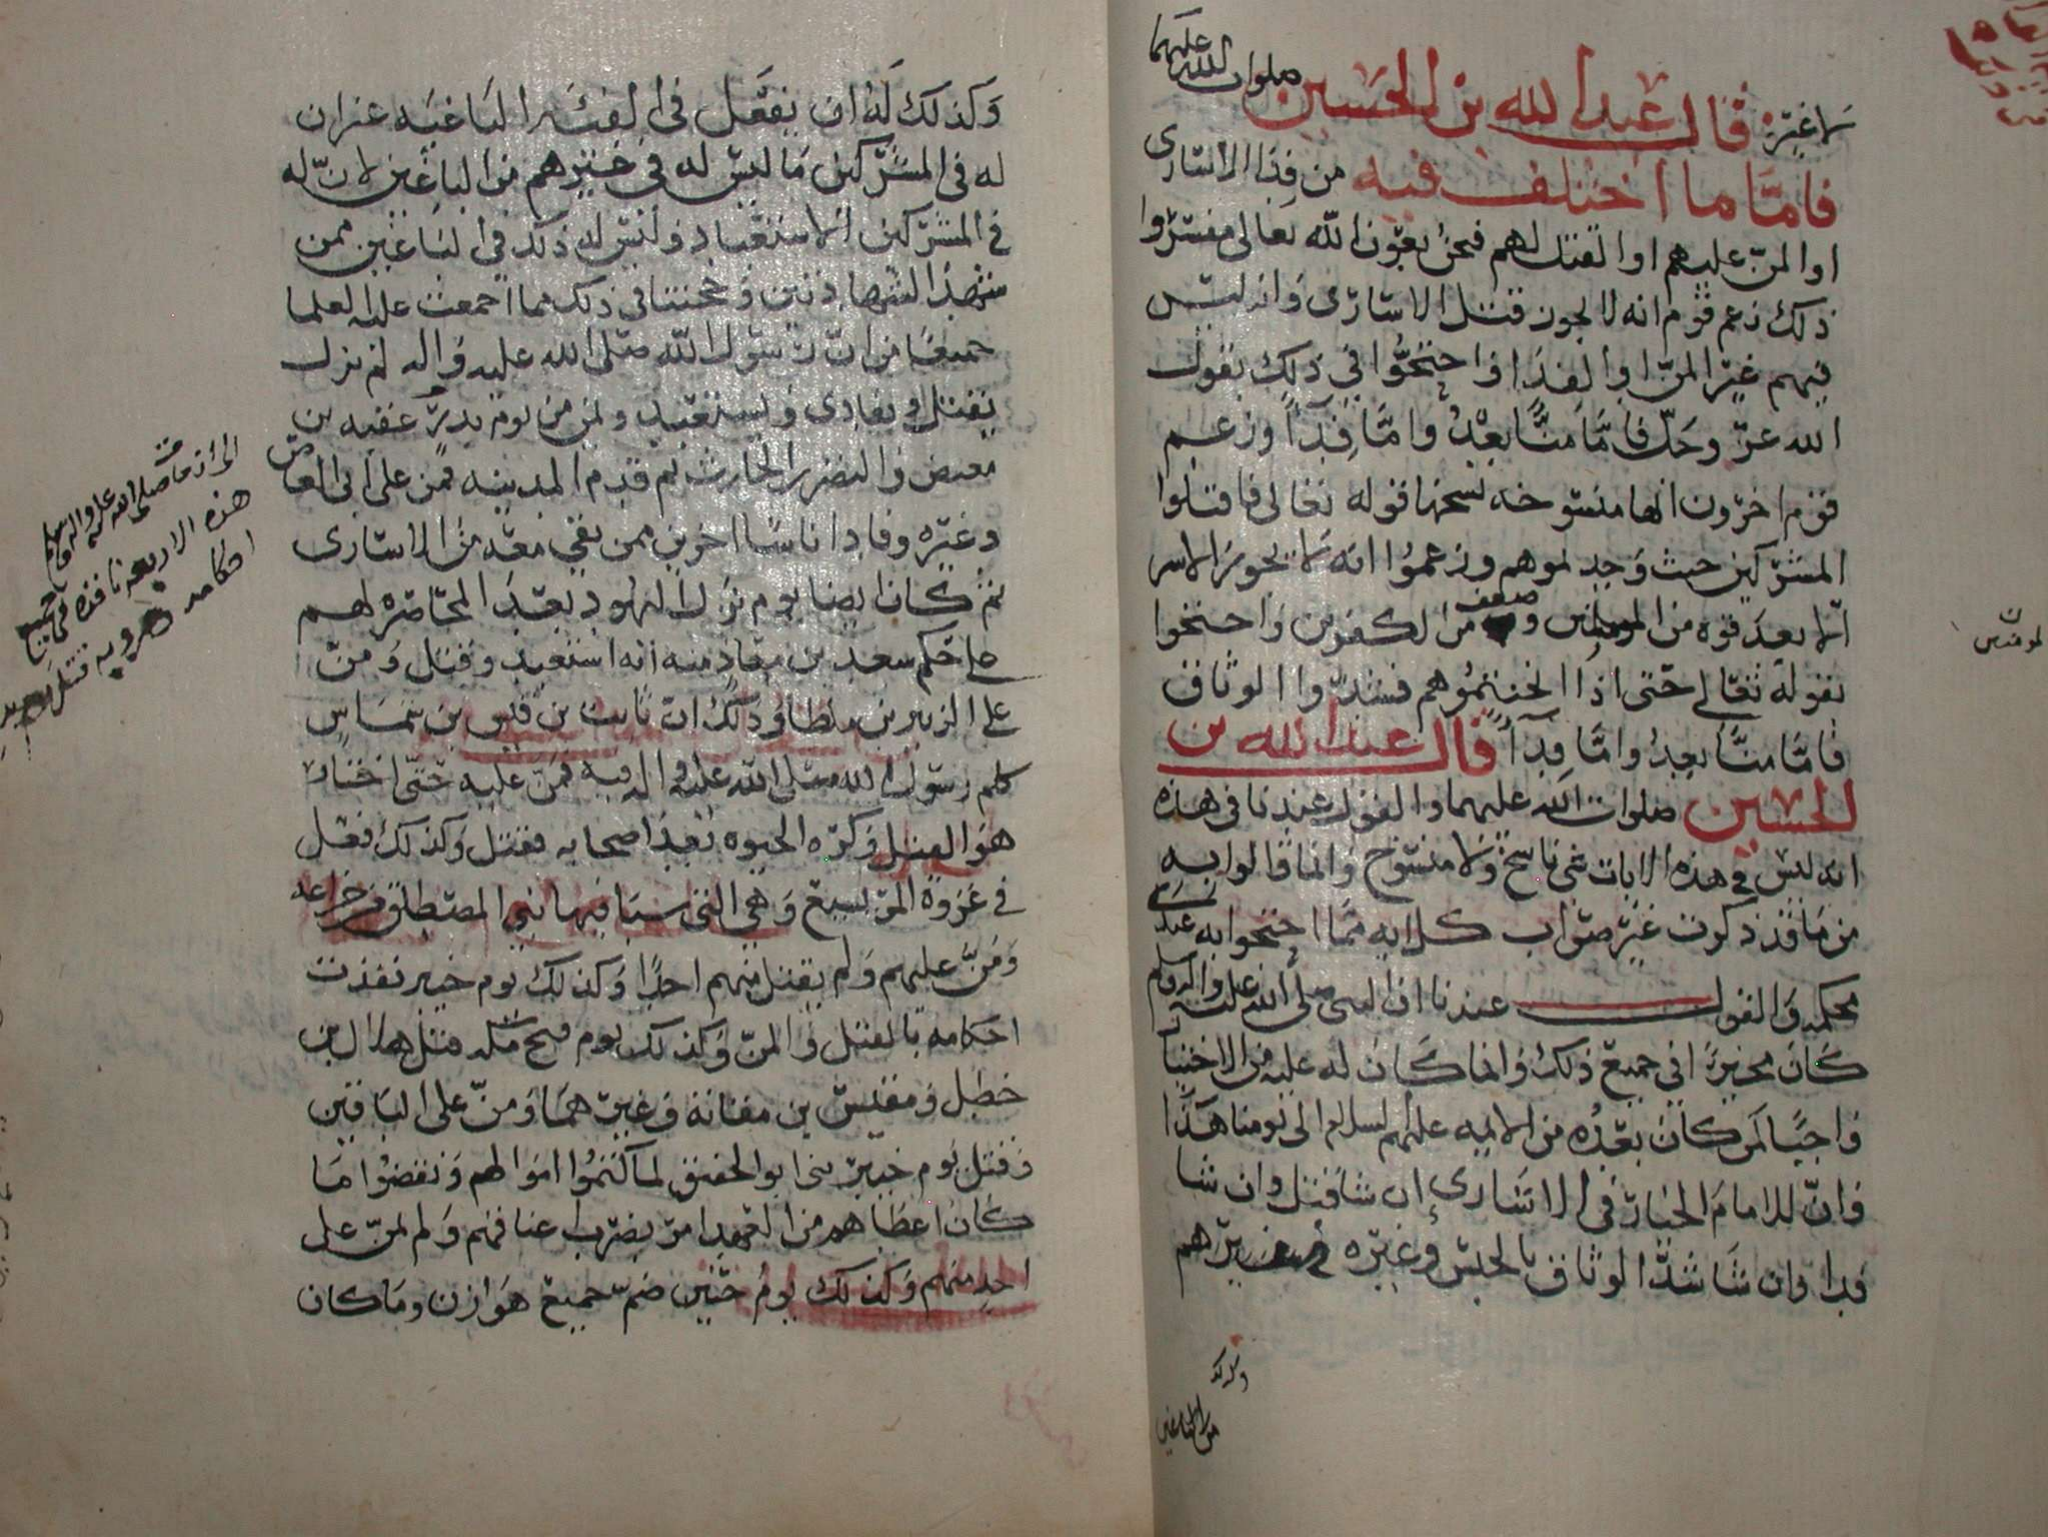 لا غيره قال عبد الله بن الحسين صلوات الله عليهما
فاما ما اختلف فيه من فدا الاسارى
او المن عليهم او القتل لهم فنحن بعون الله تعالى مفسروا
ذلك زعم قوم انه لا يجوز قتل الاسارى وانه ليس
فيهم غير المن او الفدا واحتجوا في ذلك بقول
الله عز وجل فاما منا بعد واما فدآ وزعم
قوم اخرون انها منسوخه نسخها قوله تعالى فاقتلوا
المشركين حيث وجدتموهم وزعموا انه لا يجوز الاسر
الا بعد قوه من المومنين وضعف من الكفرين واحتجوا
بقوله تعالى حتى اذا اثخنتموهم فشدوا الوثاق
فاما منا بعد واما فدآ قال عبد الله بن
الحسين صلوات الله عليهما والقول عندنا في هذه
انه ليس في هذه الايات شي ناسخ ولا منسوخ وانما قالوا به
من ما قد ذكرت غير صواب كل ايه مما احتجوا به عندي
محكمه والقول عندنا ان النبي صلى الله عليه واله وسلم
كان مخيرا في جميع ذلك وانما كان له عليه من الاختيار
واجبا لمن كان بعده من الايمه عليهم السلام الى يومنا هذا
وان للامام الخيار في الاسارى ان شا قتل وان شا
فدا وان شا شد الوثاق بالحبس وغيره
وكذلك
من الباغين
المومنين
وكذلك له ان يفعل في الفئه الباغيه غير ان
له في المشركين ما ليس له في غيرهم من الباغين لان له
في المشركين الاستعباد وليس له ذلك في الباغين ممن
شهد الشهادتين وحجتنا في ذلك مما اجمعت عليه العلما
جميعا من ان رسول الله صلى الله عليه واله لم يزل
يقتل ويفادي ويستعبد ويمن من يوم بدر عقبه بن
معيض والنضر بن الحارث ثم قدم المدينه فمن على ابي العاص
وغيره وفادا ناسا اخرين ممن بقي معه من الاسارى
ثم كان ايضا يوم نزل اليهود بعد المحاصره لهم
على حكم سعد بن معاذ منه انه استعبد وقتل ومن
على الزبير بن باطا وذلك ان ثابت بن قيس بن شماس
كلم رسول الله صلى الله عليه واله فيه فمن عليه حتى اختار
هو القتل وكره الحيوه بعد اصحابه فقتل وكذلك فعل
في غزوة المريسيع وهي التي سبا فيها بني المصطلق من خزاعه
ومن عليهم ولم يقتل منهم احدا وكذلك يوم خيبر نفذت
احكامه بالقتل والمن وكذلك يوم فتح مكه قتل هلال بن
خطل ومقيس بن صبابة وغيرهما ومن على الباقين
وقتل يوم خيبر بني ابو الحقيق لما كتموا اموالهم ونقضوا ما
كان اعطاهم من العهد امر بضرب اعناقهم ولم يمن على
احد منهم وكذلك يوم حنين ضم جميع هوازن وما كان
الى ان مات صلى الله عليه واله وسلم
هذه الاربعه نافذه في جميع